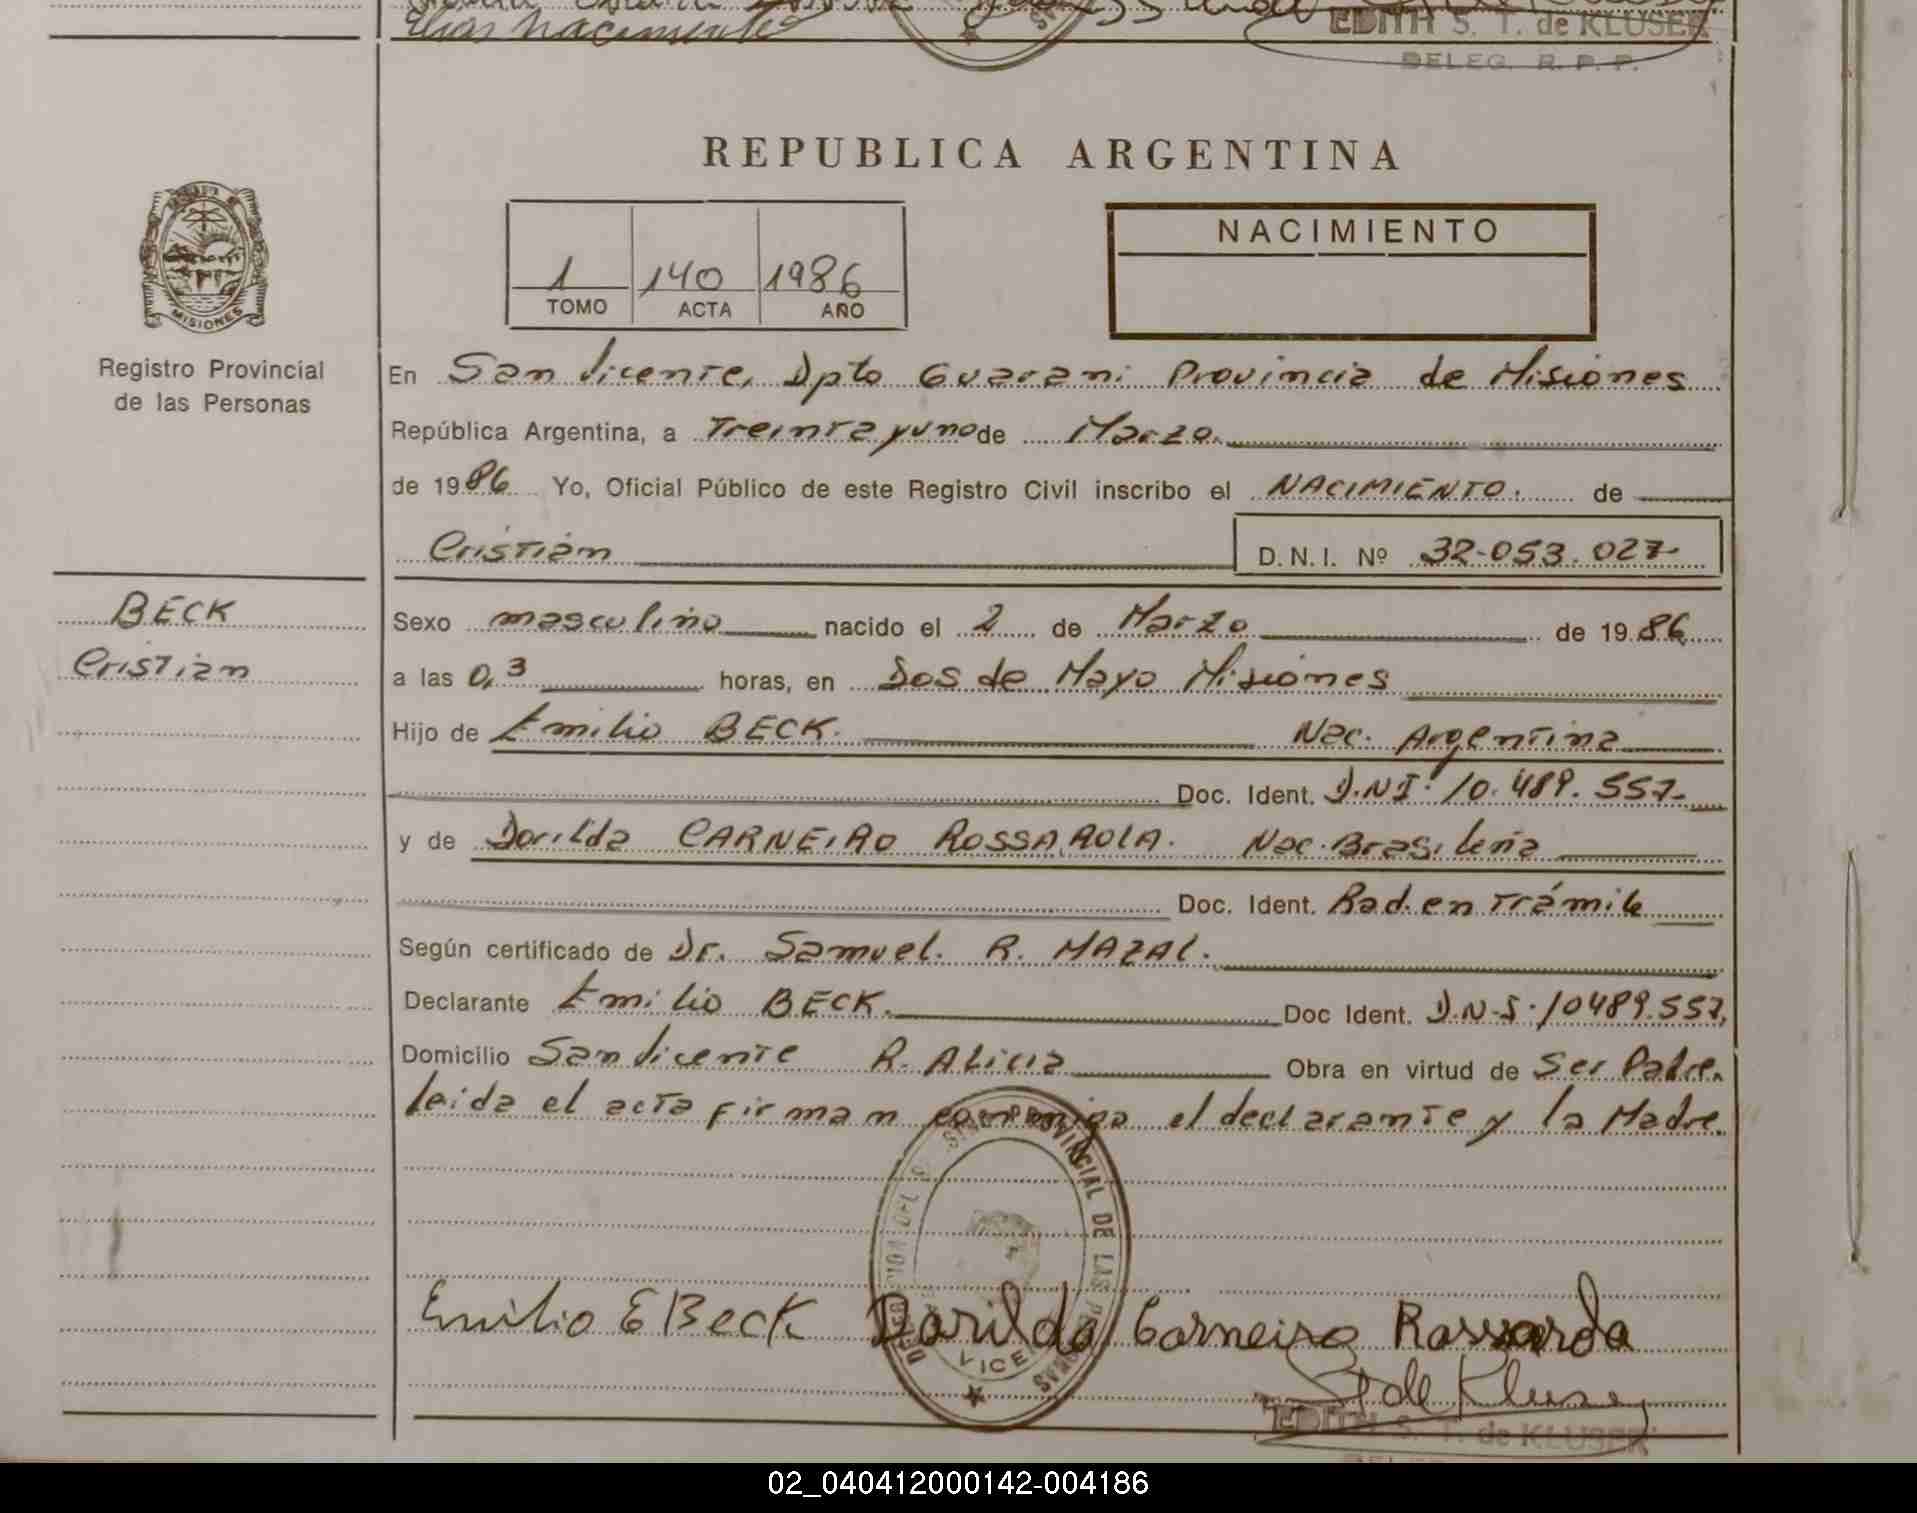 Elias nacimiento
EDITH S. T. de KLUSER
DELEG. R. P. P.
REPUBLICA ARGENTINA
MISIONES
Registro Provincial
de las Personas
1 140 1986
TOMO ACTA AÑO
NACIMIENTO
En San Vicente, Dpto Guarani Provincia de Misiones
República Argentina, a Treinta y uno de Marzo.
de 1986 Yo, Oficial Público de este Registro Civil inscribo el NACIMIENTO. de
Cristian D.N.I. Nº 32.053.027
BECK
Cristian
Sexo masculino nacido el 2 de Marzo de 1986
a las 0,3 horas, en Dos de Mayo Misiones
Hijo de Emilio BECK. Nac. Argentina
Doc. Ident. D.N.I. 10.489.557
y de Dorilda CARNEIRO ROSSAROLA. Nac. Brasileña
Doc. Ident. Rad. en Trámite
Según certificado de Dr. Samuel. R. MAZAL.
Declarante Emilio BECK. Doc Ident. D.N.I. 10489.557,
Domicilio San Vicente R. Alicia Obra en virtud de Ser Padre.
leida el acta firman conmigo el declarante y la Madre.
PROVINCIAL DE LAS PERSONAS
VICE
Emilio E Beck Dorilda Carneiro Rossarola
S T de Kluser
EDITH S. T. de KLUSER
02_040412000142-004186